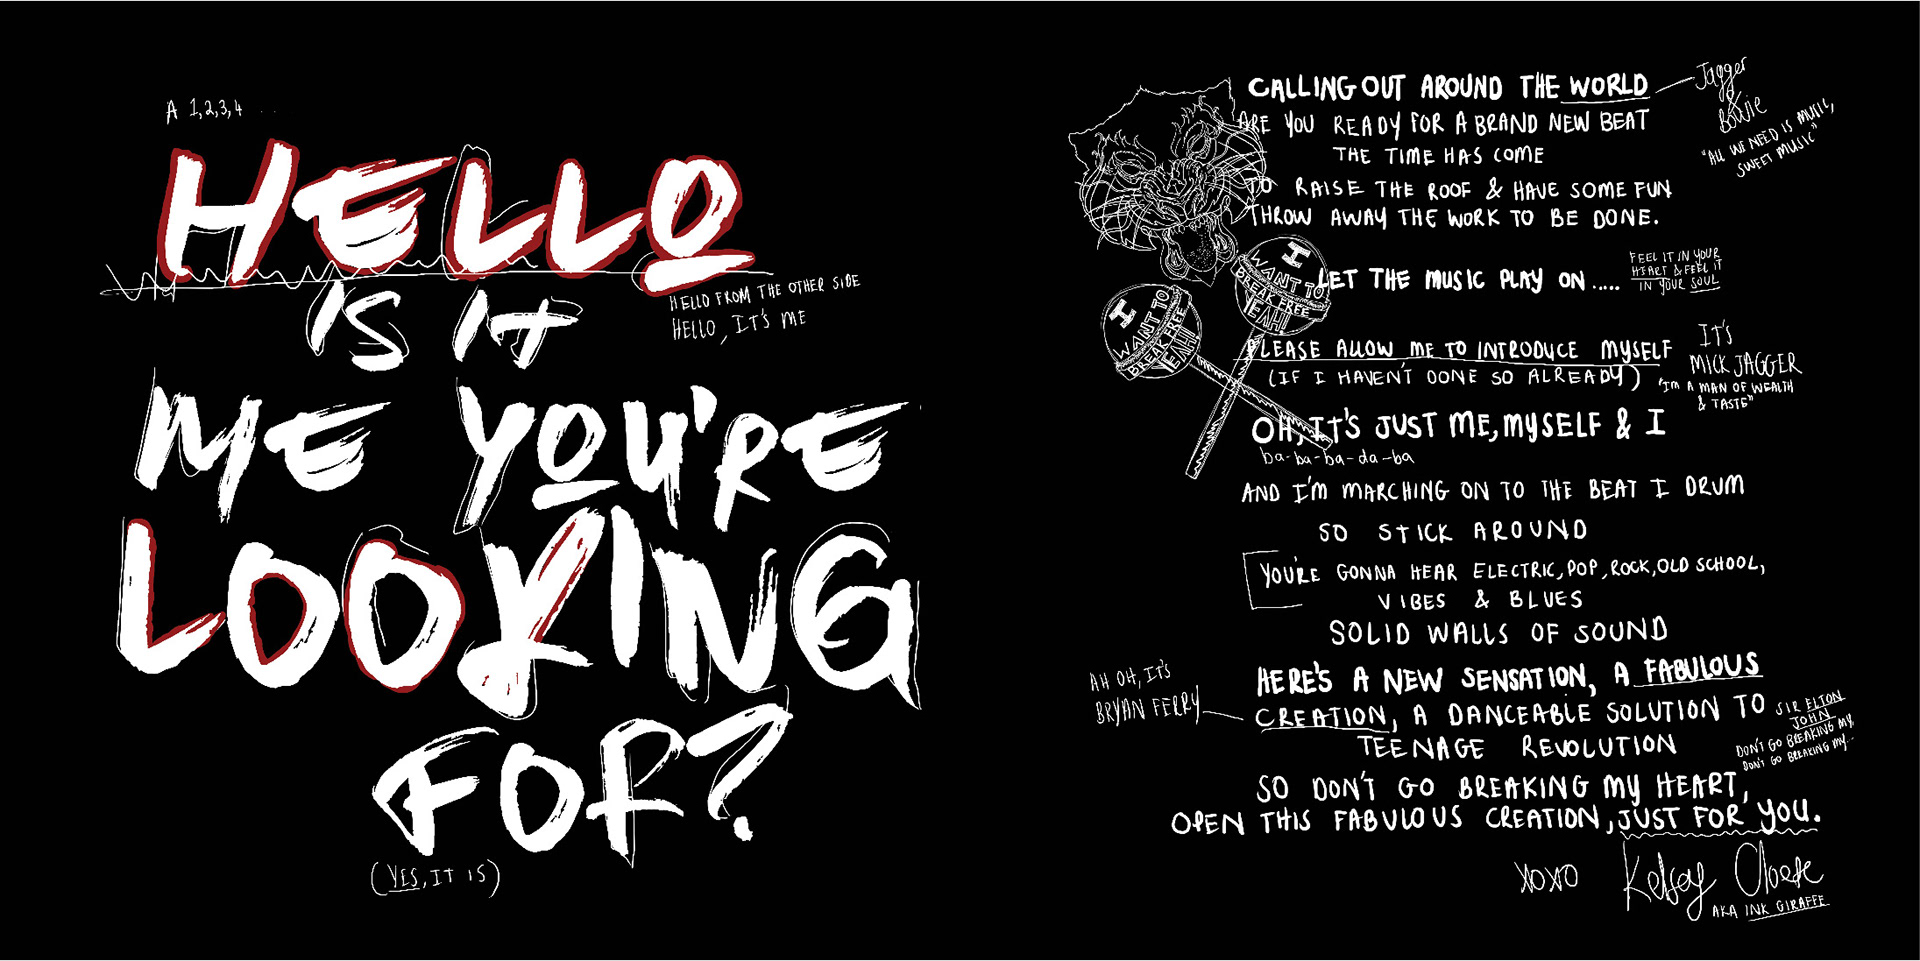 A 1,2,3,4 ...
HELLO
IS IT
HELLO FROM THE OTHER SIDE
HELLO, IT'S ME
ME YOU'RE
LOOKING
FOR?
(YES, IT IS)
CALLING OUT AROUND THE WORLD
Jagger
&
Bowie
"ALL WE NEED IS MUSIC,
SWEET MUSIC"
ARE YOU READY FOR A BRAND NEW BEAT
THE TIME HAS COME
TO RAISE THE ROOF & HAVE SOME FUN
THROW AWAY THE WORK TO BE DONE.
I
WANT TO
BREAK FREE
YEAH!
I
WANT TO
BREAK FREE
YEAH!
LET THE MUSIC PLAY ON .....
FEEL IT IN YOUR
HEART & FEEL IT
IN YOUR SOUL
PLEASE ALLOW ME TO INTRODUCE MYSELF
(IF I HAVEN'T DONE SO ALREADY)
IT'S
MICK JAGGER
"I'M A MAN OF WEALTH
& TASTE"
OH, IT'S JUST ME, MYSELF & I
ba-ba-ba-da-ba
AND I'M MARCHING ON TO THE BEAT I DRUM
SO STICK AROUND
YOU'RE GONNA HEAR ELECTRIC, POP, ROCK, OLD SCHOOL,
VIBES & BLUES
SOLID WALLS OF SOUND
HERE'S A NEW SENSATION, A FABULOUS
AH OH, IT'S
BRYAN FERRY
CREATION, A DANCEABLE SOLUTION TO
TEENAGE REVOLUTION
SIR ELTON
JOHN
DON'T GO BREAKING MY,
DON'T GO BREAKING MY...
SO DON'T GO BREAKING MY HEART,
OPEN THIS FABULOUS CREATION, JUST FOR YOU.
XOXO
Kelsey
AKA INK GIRAFFE